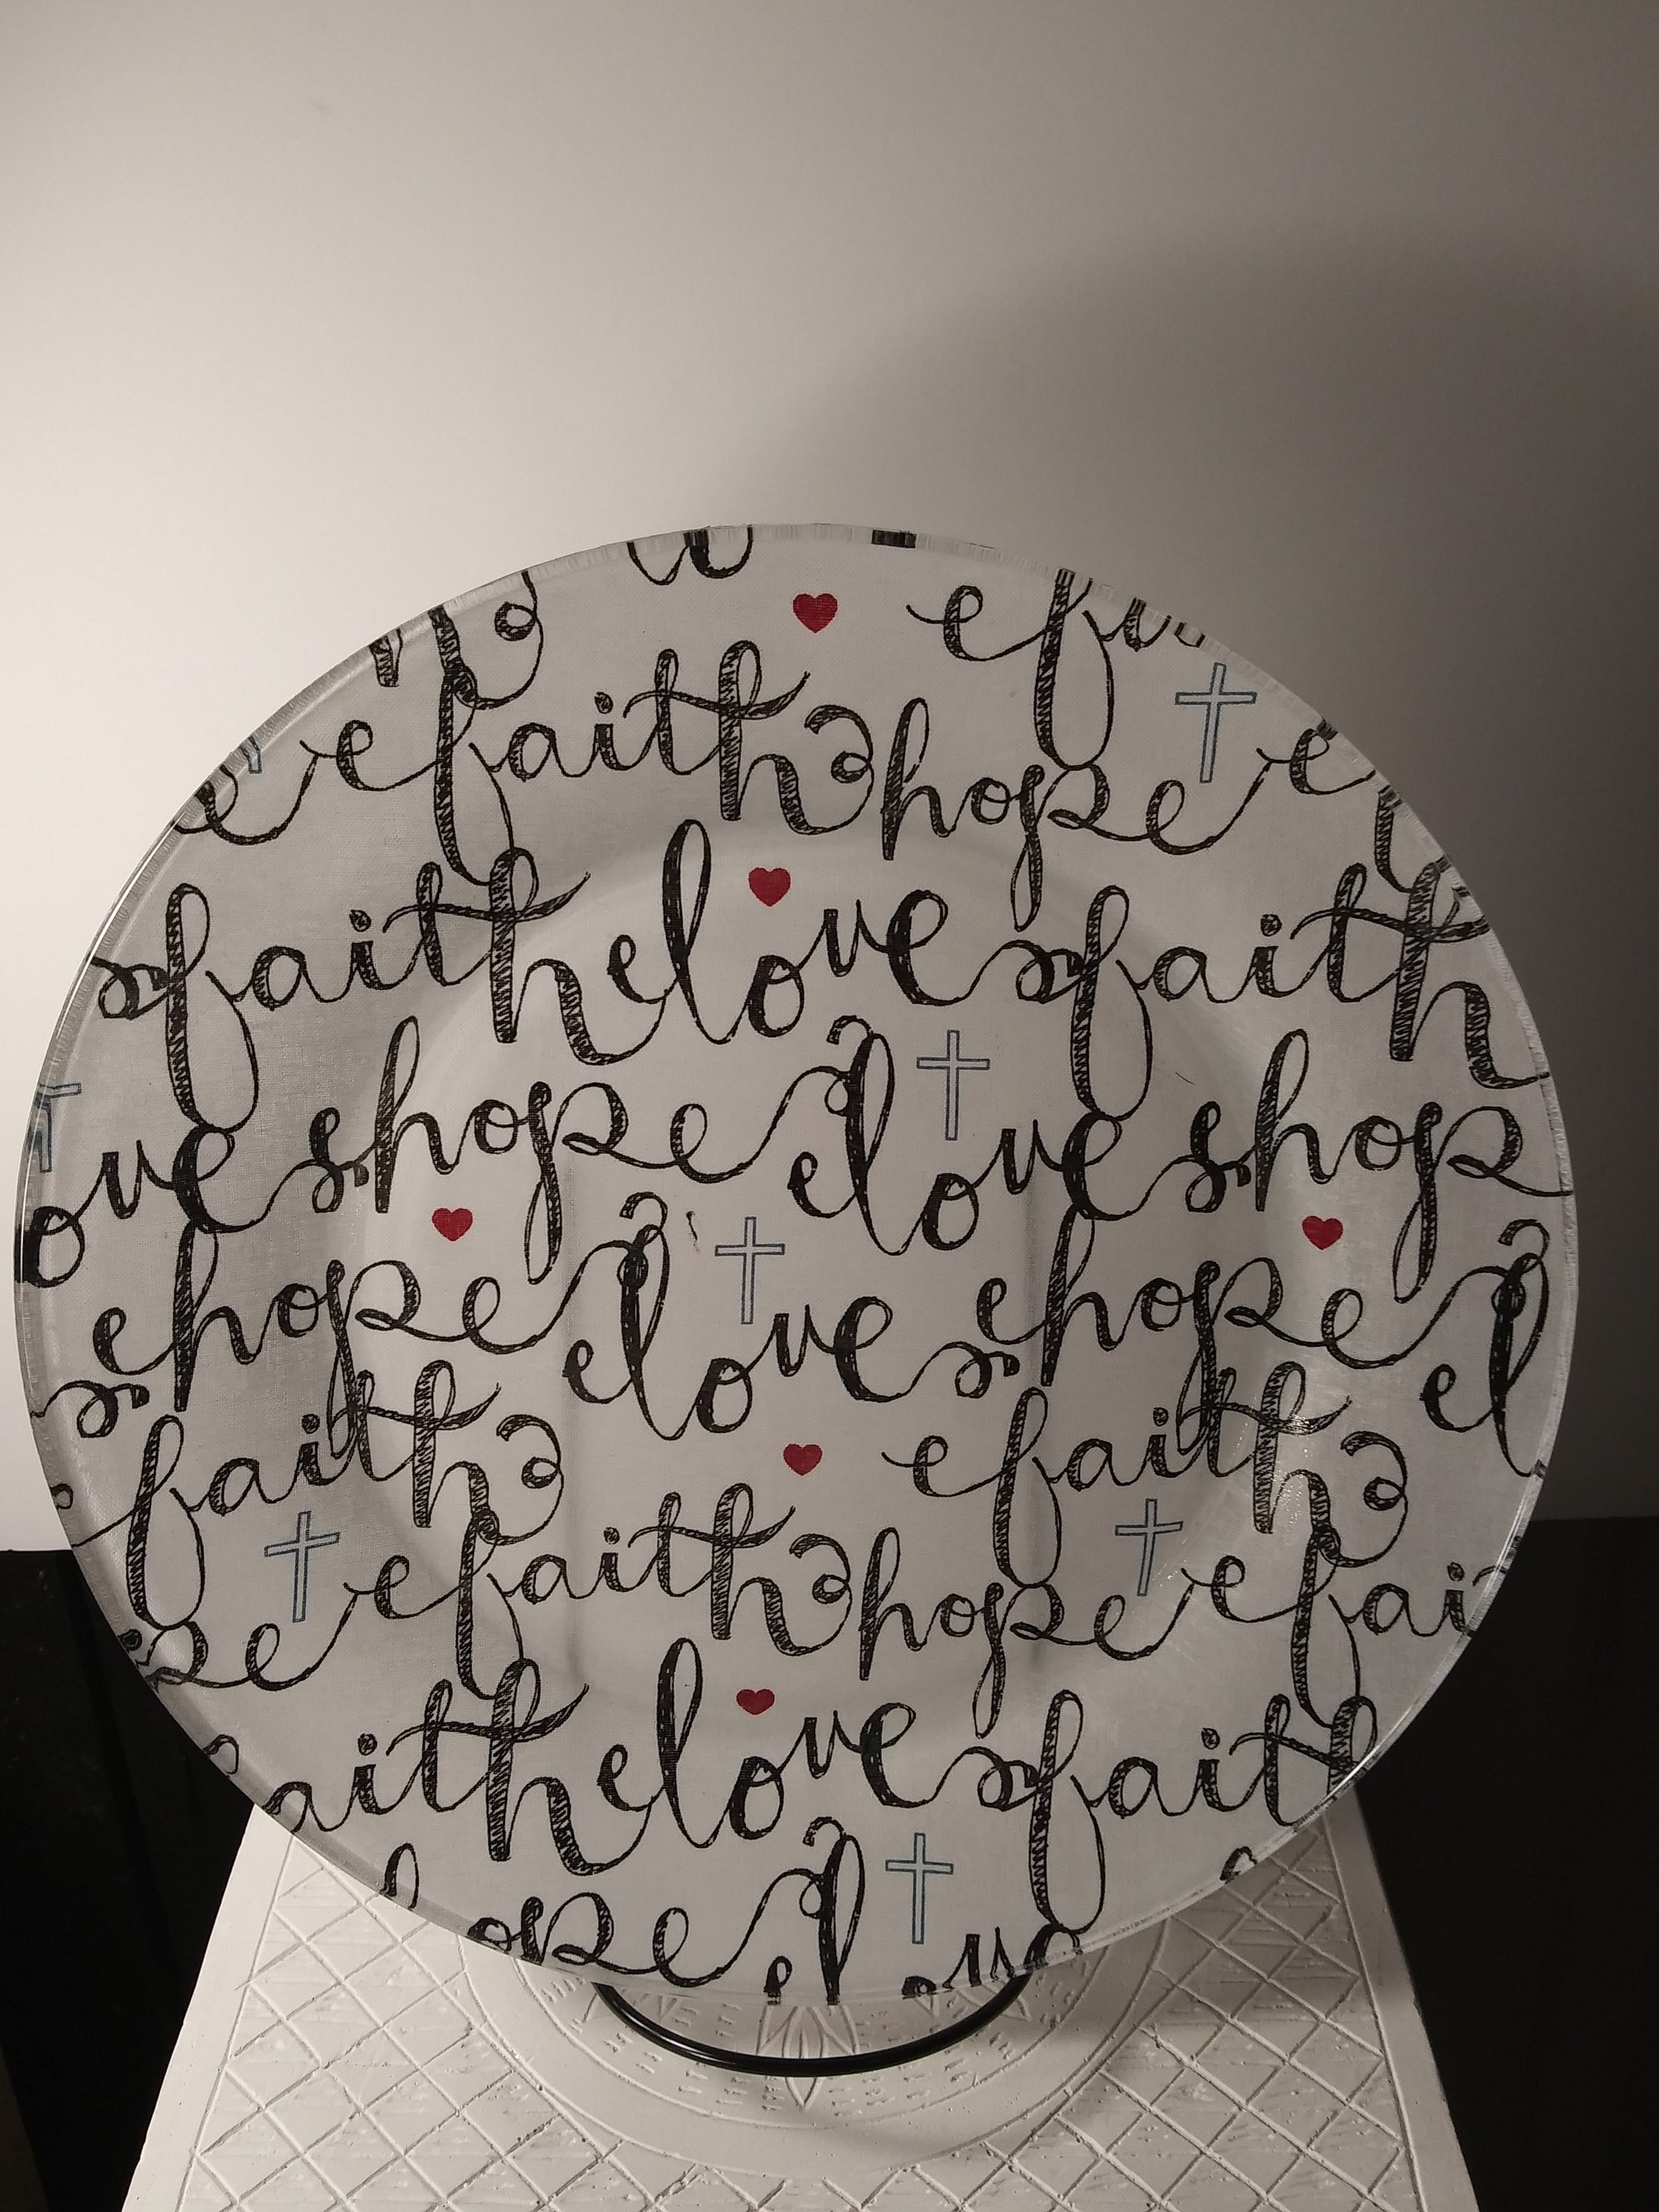 faith hope
faith love faith
hope love hop
hope love hope
faith faith
faith hope fai
faith love fait